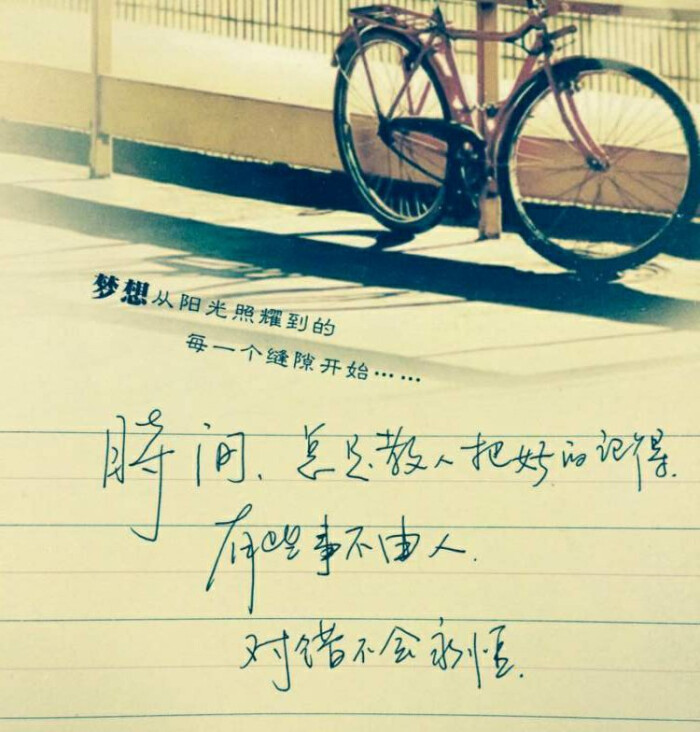 梦想从阳光照耀到的
每一个缝隙开始……
時间、总是教人把好的记得.
有些事不由人.
对错不会永恒.